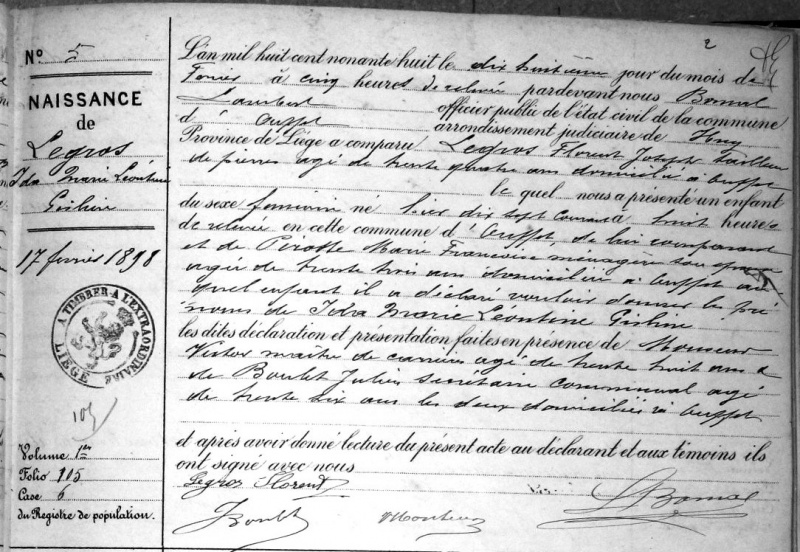 2
N° 5
NAISSANCE
de
Legros
Ida Marie Léontine
Gisline
17 février 1898
A TIMBRER A L'EXTRAORDINAIRE
LIEGE
105
Volume 1er
Folio 105
Case 6
du Registre de population.
L'an mil huit cent nonante huit le dix huitième jour du mois de
Février à cinq heures de relevée pardevant nous Bomal
Lambert officier public de l'état civil de la commune
d' Ouffet arrondissement judiciaire de Huy
Province de Liége a comparu Legros Florent Joseph tailleur
de pierres agé de trente quatre ans domicilié à Ouffet
le quel nous a présenté un enfant
du sexe feminin né hier dix sept courant à huit heures
de relevée en cette commune d'Ouffet, de lui comparant
et de Pirotte Marie Françoise ménagère son épouse
agée de trente trois ans domiciliée à Ouffet au
quel enfant il a déclaré vouloir donner les pré
noms de Ida Marie Leontine Gisline
les dites déclaration et présentation faites en présence de Monseur
Victor maître de carrières agé de trente huit ans &
de Boulet Jules secrétaire communal agé
de trente six ans les deux domiciliés à Ouffet
et après avoir donné lecture du présent acte au déclarant et aux témoins ils
ont signé avec nous
Legros Florent
L Bomal
J Boulet
V Monseur